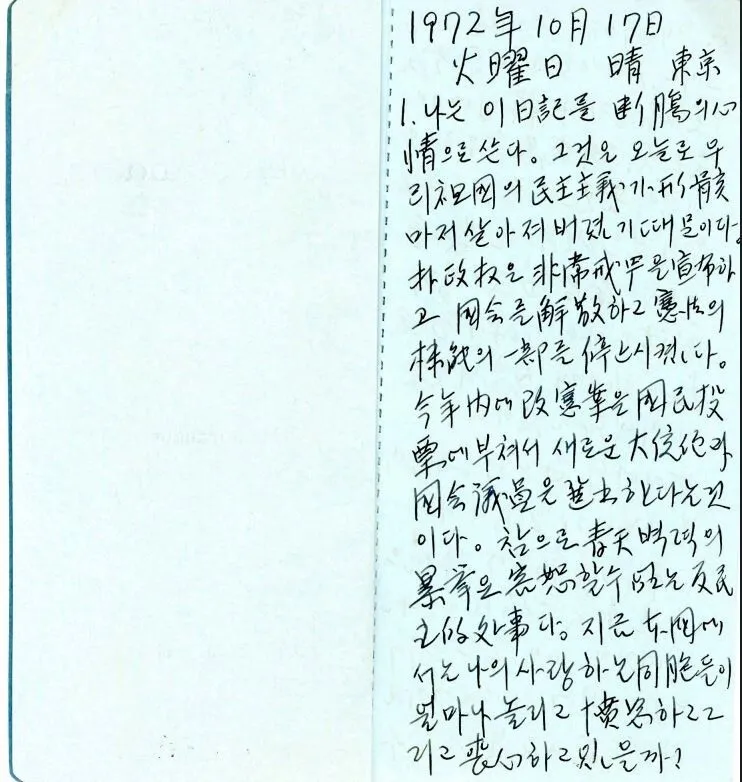 1972年 10月 17日
火曜日 晴 東京
1. 나는 이 日記를 断腸의 心
情으로 쓴다。 그것은 오늘로 우
리 祖国의 民主主義가 形骸
마저 살아져 버렸기 때문이다。
朴政权은 非常戒厳을 宣布하
고 国会를 解散하고 憲法의
機能의 一部를 停止시켰다。
今年内에 改憲案을 国民投
票에 부쳐서 새로운 大統領과
国会議員을 選出한다는 것
이다。 참으로 青天벽력의
暴挙요 容恕할 수 없는 反民
主的 処事다。 지금 本国에
서는 나의 사랑하는 同胞들이
얼마나 놀리고 憤怒하고 그
리고 喪心하고 있을까?